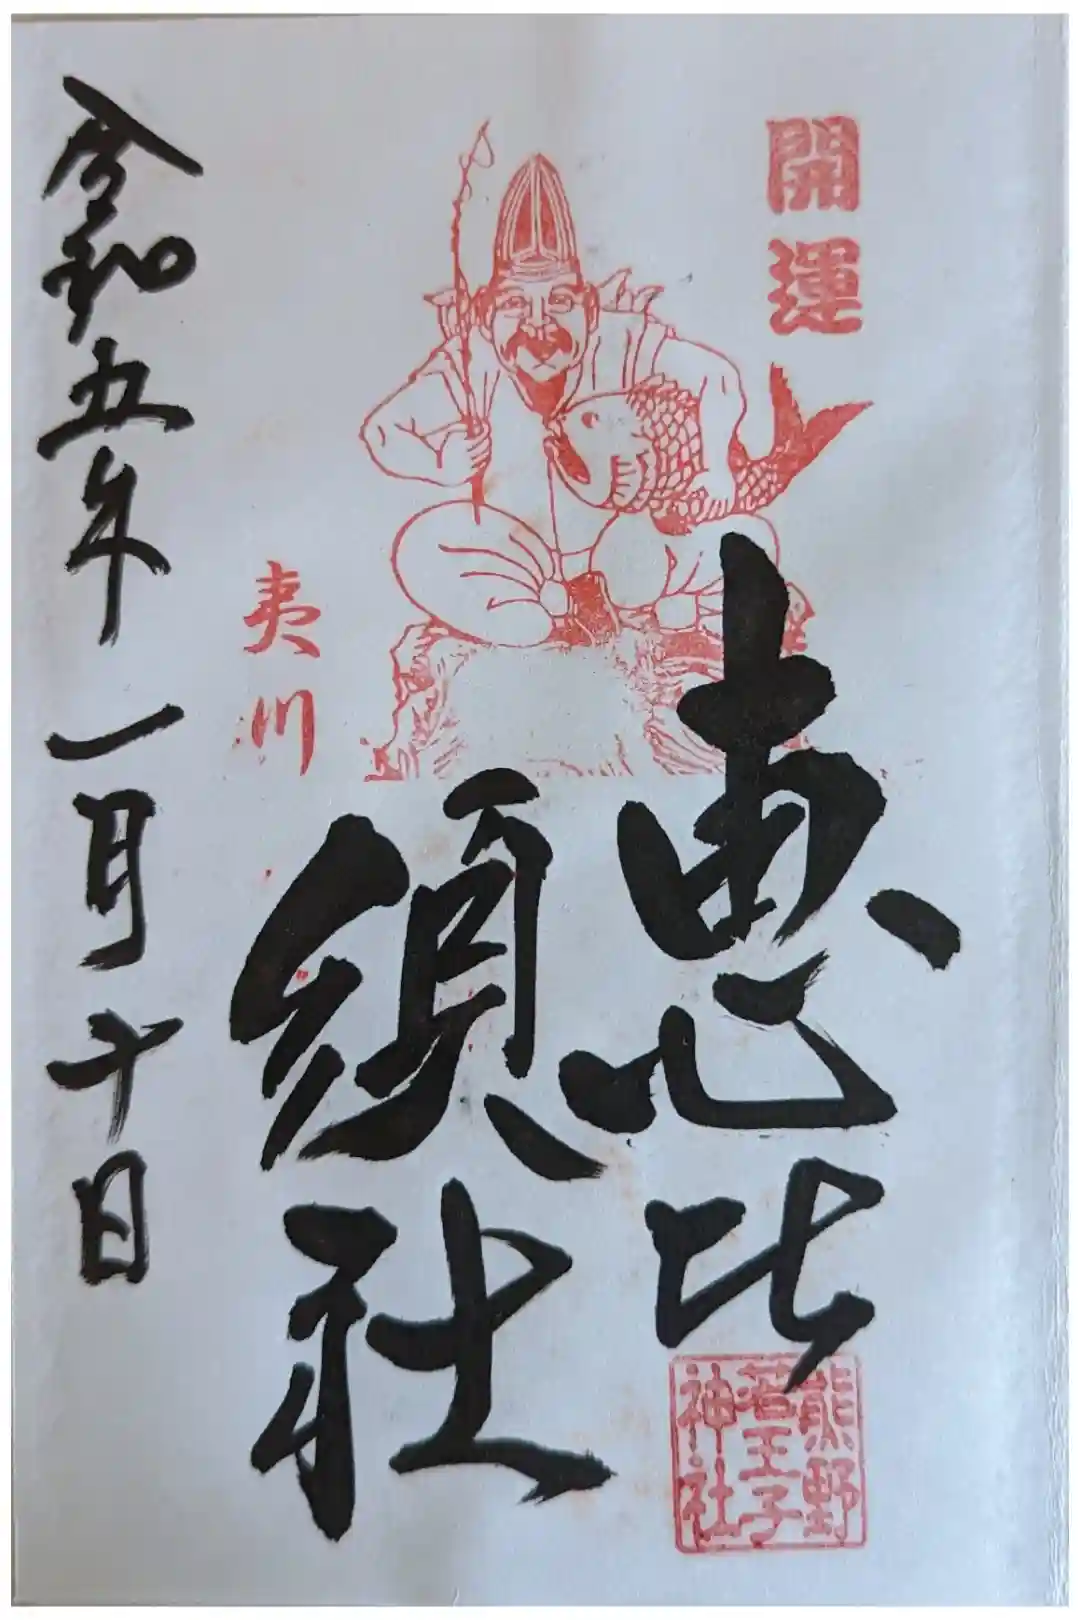 開運
恵比
須社
夷川
熊野
若王子
神社
令和五年一月十日